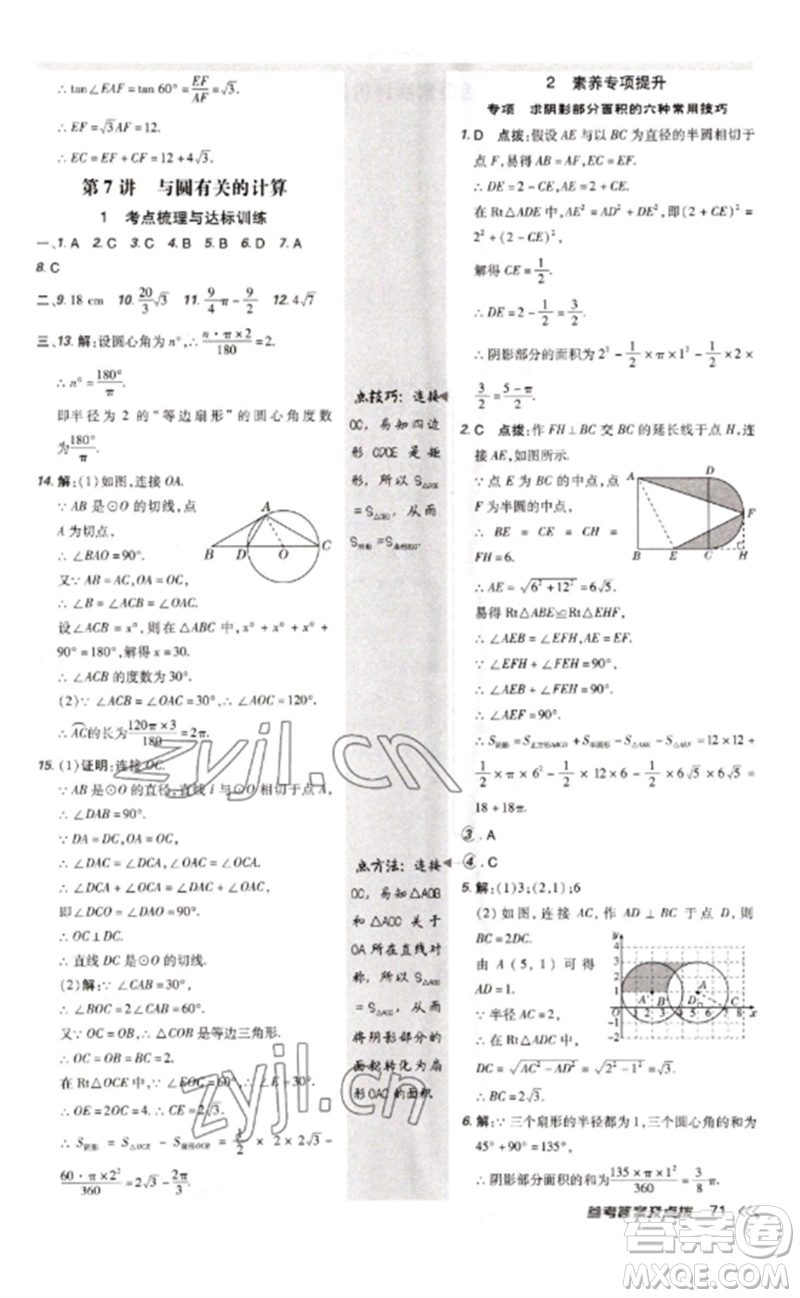 ∴ tan∠EAF = tan 60° = EF/AF = √3.
∴ EF = √3AF = 12.
∴ EC = EF + CF = 12 + 4√3.
第 7 讲　与圆有关的计算
1　考点梳理与达标训练
一、1. A　2. C　3. C　4. D　5. A　6. D　7. A
8. C
二、9. 18 cm　10. 20/3 √3　11. 9/4 π − 9/2　12. 4√7
三、13. 解：设圆心角为 n°，∴ n·π×2/180 = 2.
∴ n° = 180°/π.
即半径为 2 的“等边扇形”的圆心角度数
为 180°/π.
14. 解：(1)如图，连接 OA.
∵ AB 是⊙O 的切线，点
A 为切点，
∴ ∠BAO = 90°.
又∵ AB = AC，OA = OC，
∴ ∠B = ∠ACB = ∠OAC.
设∠ACB = x°，则在△ABC 中，x° + x° + x° +
90° = 180°，解得 x = 30.
∴ ∠ACB 的度数为 30°.
(2)∵ ∠ACB = ∠OAC = 30°，∴ ∠AOC = 120°.
∴ AC的长为 120π×3/180 = 2π.
15. (1)证明：连接 OC.
∵ AB 是⊙O 的直径，直线 l 与⊙O 相切于点 A，
∴ ∠DAB = 90°.
∵ DA = DC，OA = OC，
∴ ∠DAC = ∠DCA，∠OAC = ∠OCA.
∴ ∠DCA + ∠ACO = ∠DAC + ∠CAO，
即∠DCO = ∠DAO = 90°.
∴ OC⊥DC.
∴ 直线 DC 是⊙O 的切线.
(2)解：∵ ∠CAB = 30°，
∴ ∠BOC = 2∠CAB = 60°.
又∵ OC = OB，∴ △COB 是等边三角形.
∴ OC = OB = BC = 2.
在 Rt△OCE 中，∵ ∠CEO = 30°，
∴ OE = 2OC = 4. ∴ CE = 2√3.
∴ S阴影 = S△OCE − S扇形OBC = 1/2 × 2 × 2√3 −
60·π×2²/360 = 2√3 − 2π/3.
点技巧：连接
OC，易知四边
形 CDOE 是矩
形，所以 S△DOE
= S△DEC，从而
S阴影 = S扇形BOC.
点方法：连接
OC，易知△AOB
和 △AOC 关于
OA 所在直线对
称，所以 S△AOB
= S△AOC，从而
将阴影部分的
面积转化为扇
形 OAC 的面积
2　素养专项提升
专项　求阴影部分面积的六种常用技巧
1. D　点拨：假设 AE 与以 BC 为直径的半圆相切于
点 F，易得 AB = AF = 2，CE = EF.
∴ DE = 2 − CE，AE = 2 + CE.
在 Rt△ADE 中，AE² = AD² + DE²，即(2 + CE)² =
2² + (2 − CE)²，
解得 CE = 1/2.
∴ DE = 2 − 1/2 = 3/2.
∴ 阴影部分的面积为 2² − 1/2 × π × 1² − 1/2 × 2 ×
3/2 = (5 − π)/2.
2. C　点拨：作 FH⊥BC 交 BC 的延长线于点 H，连
接 AE，如图所示.
∵ 点 E 为 BC 的中点，点
F 为半圆的中点，
∴ BE = CE = CH =
FH = 6.
∴ AE = √(6² + 12²) = 6√5.
易得 Rt△ABE≌Rt△EHF.
∴ ∠AEB = ∠EFH，AE = EF.
∵ ∠EFH + ∠FEH = 90°，
∴ ∠AEB + ∠FEH = 90°.
∴ ∠AEF = 90°.
∴ S阴影 = S正方形ABCD + S半圆形 − S△ABE − S△AEF = 12 × 12 +
1/2 × π × 6² − 1/2 × 12 × 6 − 1/2 × 6√5 × 6√5 =
18 + 18π.
3. A
4. C
5. 解：(1)3；(2,1)；6
(2) 如图，连接 AC，作 AD⊥BC 于点 D，则
BC = 2DC.
由 A(5,1) 可得
AD = 1.
∵ 半径 AC = 2，
∴ 在 Rt△ADC 中，
DC = √(AC² − AD²) = √(2² − 1²) = √3.
∴ BC = 2√3.
6. 解：∵ 三个扇形的半径都为 1，三个圆心角的和为
45° + 90° = 135°，
∴ 阴影部分面积的和为 135×π×1²/360 = 3/8 π.
参考答案及点拨　71
zyjl.cn
zyjl.cn
答案圈
MXQE.COM